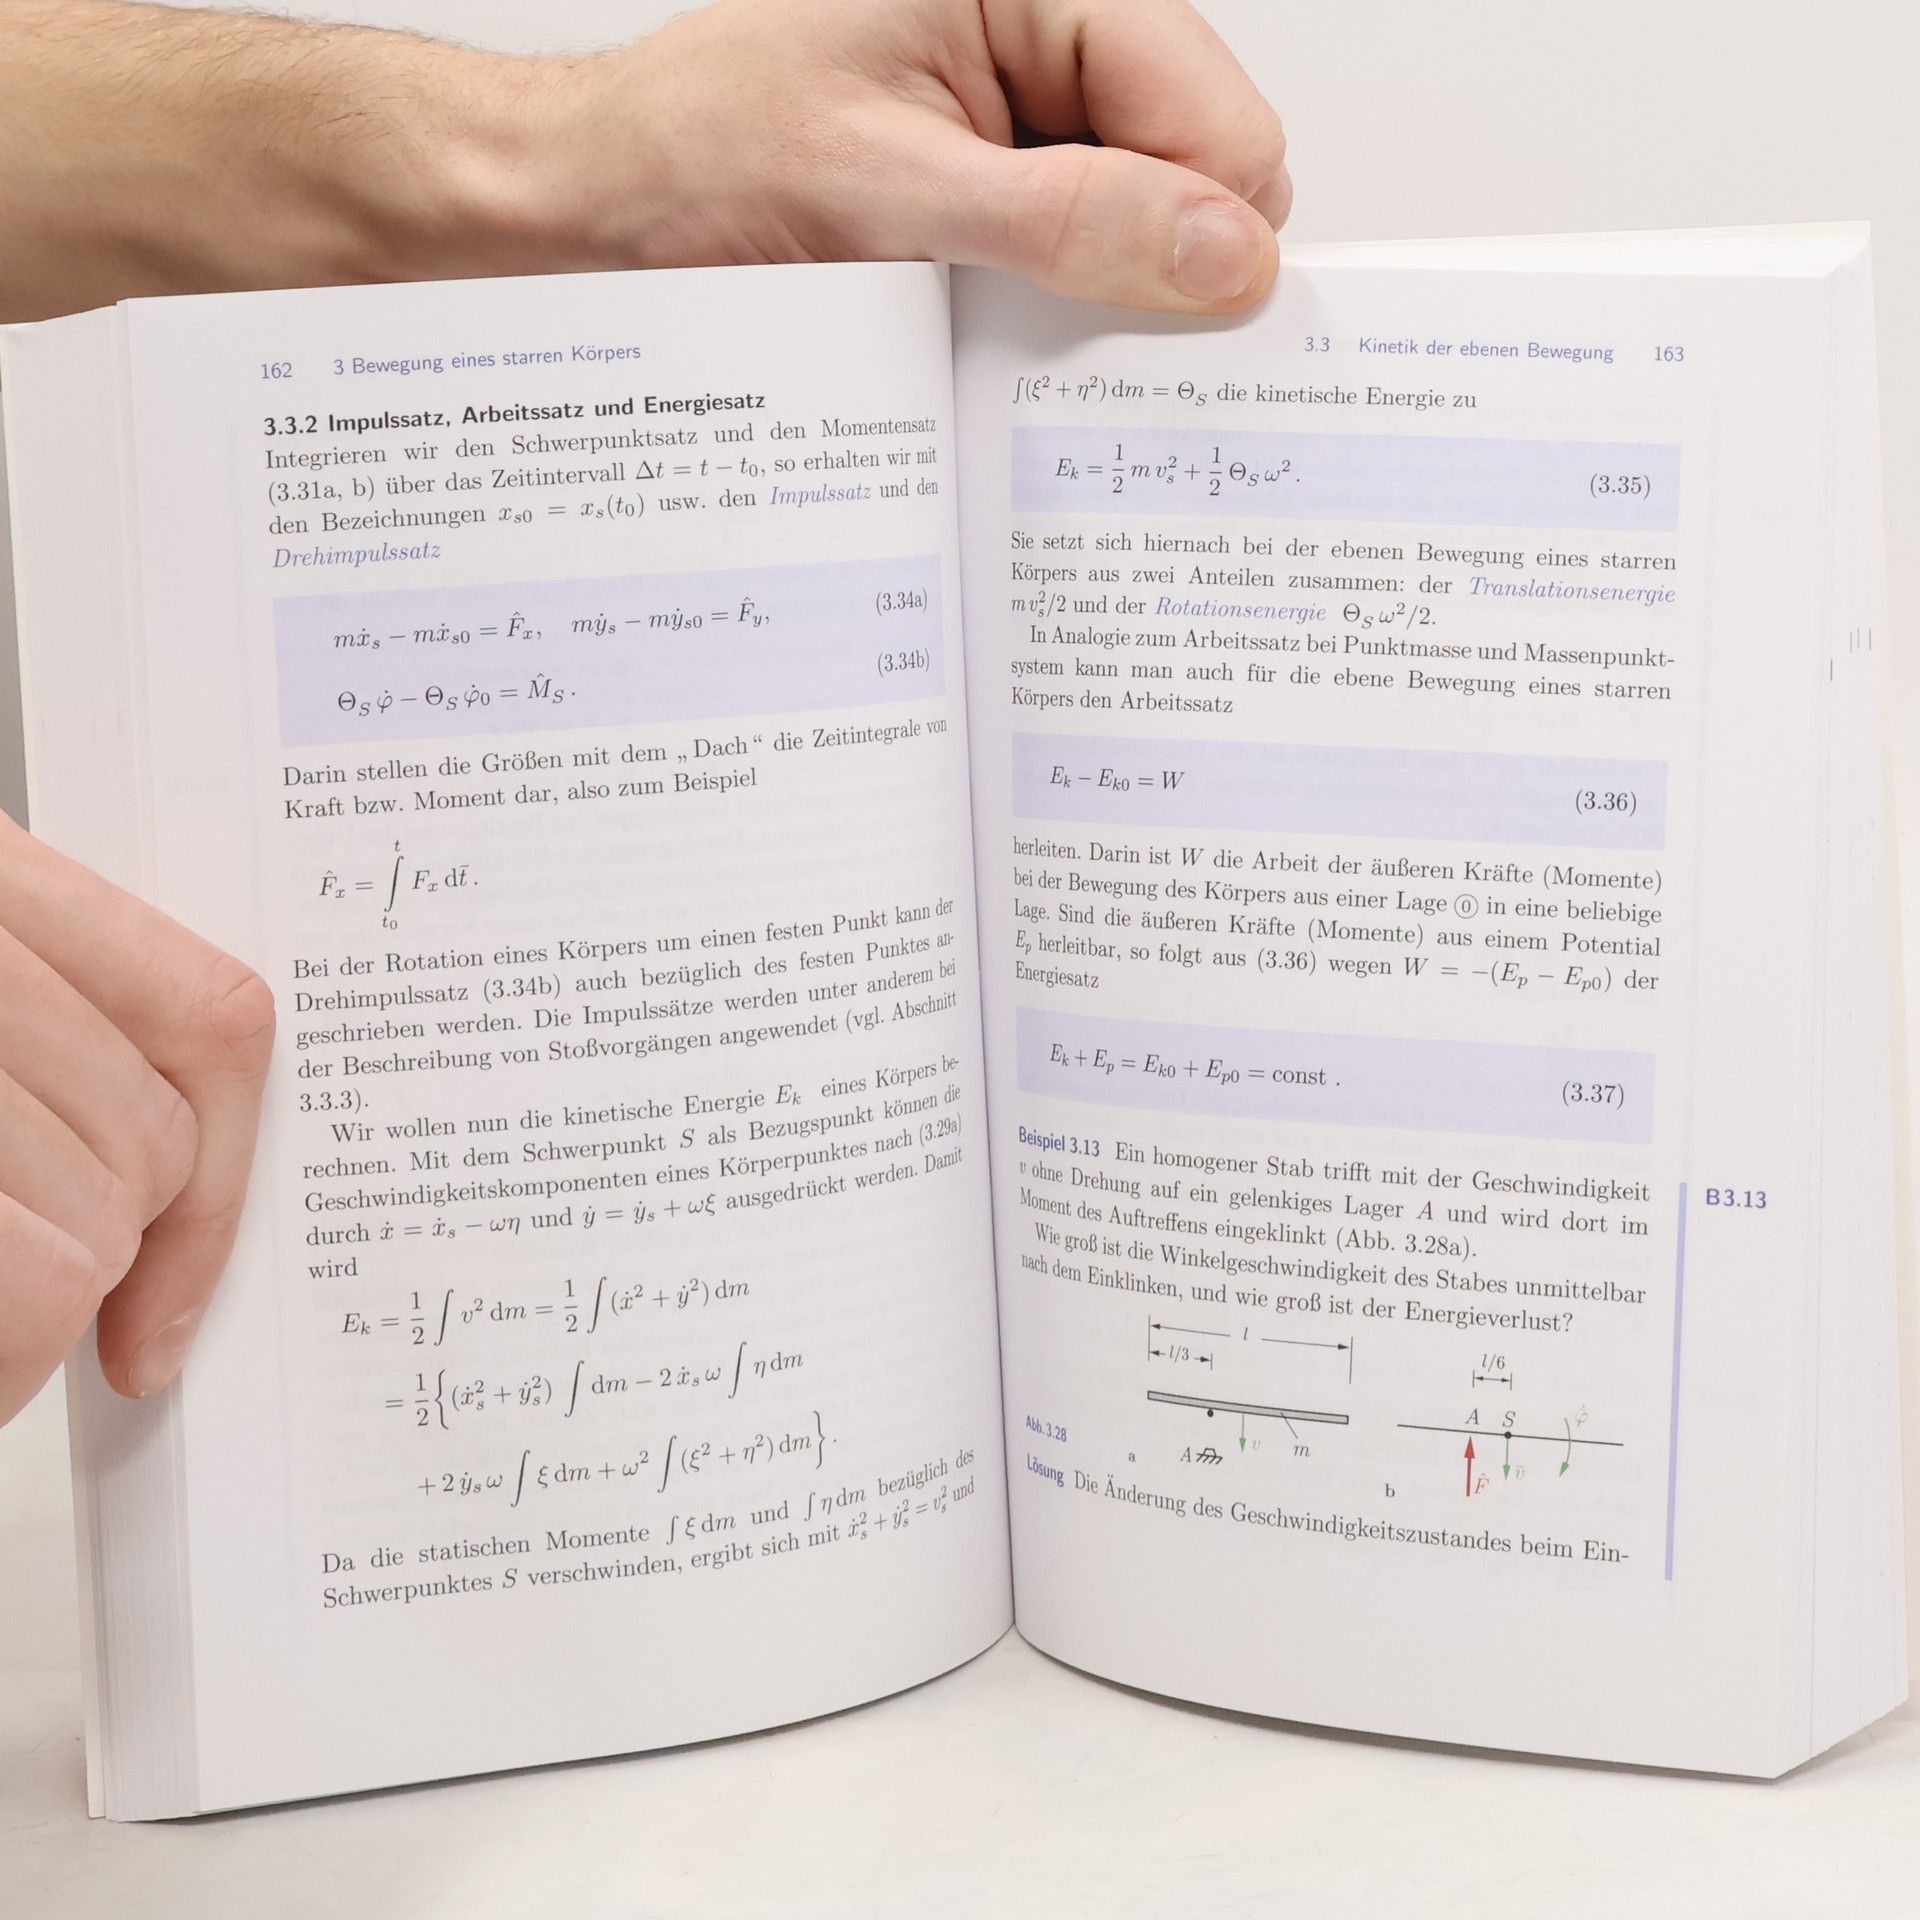 162 3 Bewegung eines starren Körpers
3.3.2 Impulssatz, Arbeitssatz und Energiesatz
Integrieren wir den Schwerpunktsatz und den Momentensatz
(3.31a, b) über das Zeitintervall Δt = t − t₀, so erhalten wir mit
den Bezeichnungen xₛ₀ = xₛ(t₀) usw. den Impulssatz und den
Drehimpulssatz
mẋₛ − mẋₛ₀ = F̂ₓ, mẏₛ − mẏₛ₀ = F̂_y, (3.34a)
Θ_S φ̇ − Θ_S φ̇₀ = M̂_S . (3.34b)
Darin stellen die Größen mit dem „Dach“ die Zeitintegrale von
Kraft bzw. Moment dar, also zum Beispiel
F̂ₓ = ∫_{t₀}^{t} Fₓ dt̄ .
Bei der Rotation eines Körpers um einen festen Punkt kann der
Drehimpulssatz (3.34b) auch bezüglich des festen Punktes an-
geschrieben werden. Die Impulssätze werden unter anderem bei
der Beschreibung von Stoßvorgängen angewendet (vgl. Abschnitt
3.3.3).
Wir wollen nun die kinetische Energie E_k eines Körpers be-
rechnen. Mit dem Schwerpunkt S als Bezugspunkt können die
Geschwindigkeitskomponenten eines Körperpunktes nach (3.29a)
durch ẋ = ẋₛ − ωη und ẏ = ẏₛ + ωξ ausgedrückt werden. Damit
wird
E_k = 1/2 ∫ v² dm = 1/2 ∫(ẋ² + ẏ²) dm
= 1/2 {(ẋₛ² + ẏₛ²) ∫ dm − 2 ẋₛ ω ∫ η dm
+ 2 ẏₛ ω ∫ ξ dm + ω² ∫(ξ² + η²) dm} .
Da die statischen Momente ∫ ξ dm und ∫ η dm bezüglich des
Schwerpunktes S verschwinden, ergibt sich mit ẋₛ² + ẏₛ² = vₛ² und
3.3 Kinetik der ebenen Bewegung 163
∫(ξ² + η²) dm = Θ_S die kinetische Energie zu
E_k = 1/2 m vₛ² + 1/2 Θ_S ω² . (3.35)
Sie setzt sich hiernach bei der ebenen Bewegung eines starren
Körpers aus zwei Anteilen zusammen: der Translationsenergie
m vₛ²/2 und der Rotationsenergie Θ_S ω²/2.
In Analogie zum Arbeitssatz bei Punktmasse und Massenpunkt-
system kann man auch für die ebene Bewegung eines starren
Körpers den Arbeitssatz
E_k − E_k0 = W (3.36)
herleiten. Darin ist W die Arbeit der äußeren Kräfte (Momente)
bei der Bewegung des Körpers aus einer Lage ⓪ in eine beliebige
Lage. Sind die äußeren Kräfte (Momente) aus einem Potential
E_p herleitbar, so folgt aus (3.36) wegen W = −(E_p − E_p0) der
Energiesatz
E_k + E_p = E_k0 + E_p0 = const . (3.37)
Beispiel 3.13 Ein homogener Stab trifft mit der Geschwindigkeit
v ohne Drehung auf ein gelenkiges Lager A und wird dort im
Moment des Auftreffens eingeklinkt (Abb. 3.28a).
B3.13
Wie groß ist die Winkelgeschwindigkeit des Stabes unmittelbar
nach dem Einklinken, und wie groß ist der Energieverlust?
l
l/3
A
v
m
a
l/6
A S
φ̇
F̂
v̄
b
Abb. 3.28
Lösung Die Änderung des Geschwindigkeitszustandes beim Ein-